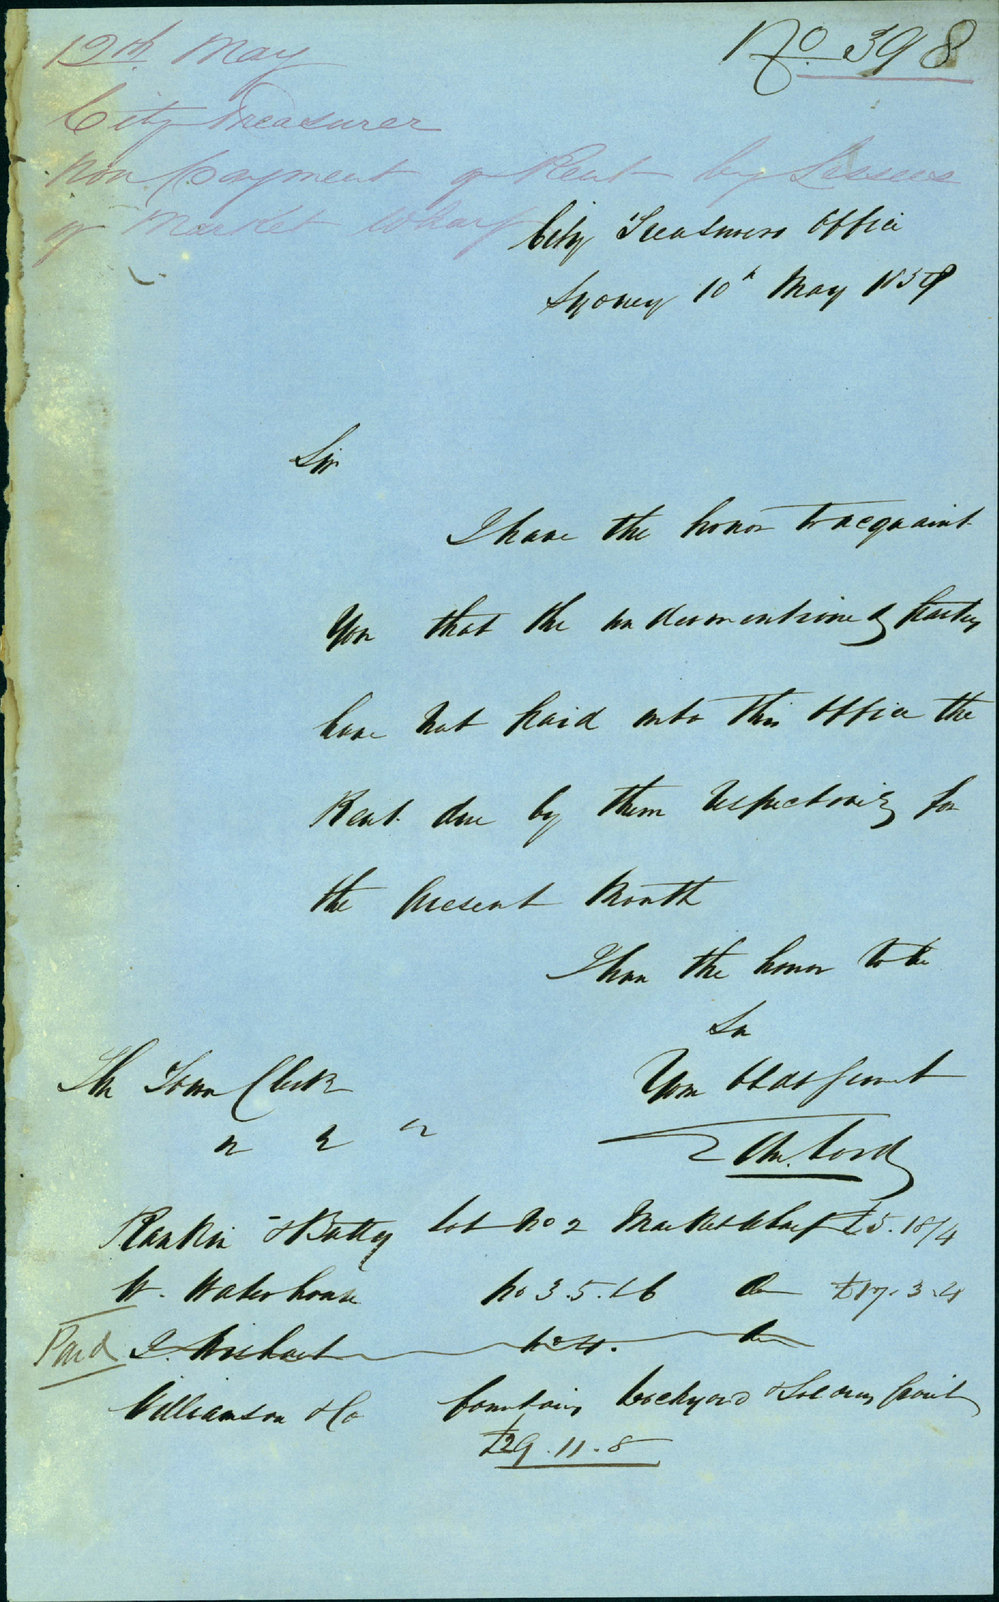 12th May
No. 398
City Treasurer
Non payment of Rent by Lessees
of Market Wharf
City Treasurers Office
Sydney 10th May 1859
Sir
I have the honor to acquaint
You that the undermentioned parties
have not paid into this Office the
Rent due by them respectively for
the present Month
I have the honor to be
Sir
Your Obdt Servant
The Town Clerk
Rankin & Battey Lot No 2 Market Wharf £5.18/4
W. Waterhouse No 3.5.&6 do £17.3.4
Paid No 4. do
Williamson & Co Dockyard &
£29.11.8